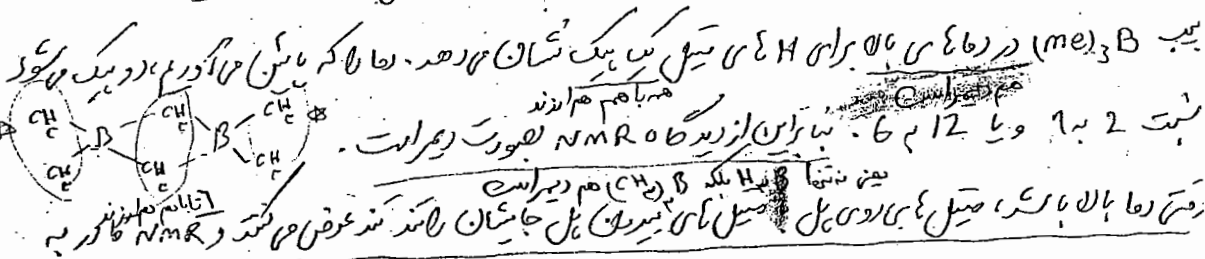 (me)₃B در دماهای بالا برای H های متیل یک پیک نشان می‌دهد. دما را که پائین می‌آوریم، دو پیک می‌شود
هم دیمر است
همه با هم هم‌ارزند
نسبت 2 به 1 و یا 12 به 6. بنابراین از دیدگاه NMR بصورت دیمر است.
CH₃ CH₃ B CH₃ CH₃ B CH₃ CH₃
یعنی نه تنها BH₃ بلکه B(CH₃)₃ هم دیمر است
وقتی دما بالا باشد، متیل های روی پل با متیل های بیرون پل جایشان را تند تند عوض می‌کنند و NMR قادر به